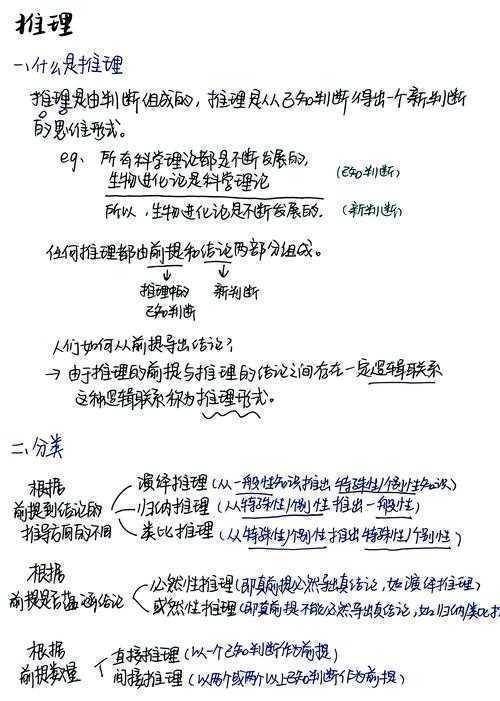 推理
一、什么是推理
推理是由判断组成的，推理是从已知判断得出一个新判断
的思维形式。
eg、所有科学理论都是不断发展的，
生物进化论是科学理论 （已知判断）
所以，生物进化论是不断发展的。（新判断）
任何推理都由前提和结论两部分组成。
推理中的 新判断
已知判断
人们如何从前提导出结论？
→ 由于推理的前提与推理的结论之间存在一定逻辑联系
这种逻辑联系称为推理形式。
二、分类
根据
前提到结论的
推导方向的不同
演绎推理（从一般性知识推出特殊性/个别性知识）
归纳推理（从特殊性/个别性推出一般性）
类比推理（从特殊性/个别性推出特殊性/个别性）
根据
前提是否蕴涵结论
必然性推理（即真前提必然导出真结论，如演绎推理）
或然性推理（即真前提不能必然导出真结论，如归纳/类比推
根据
前提数量
直接推理（以一个已知判断作为前提）
间接推理（以两个或两个以上已知判断作为前提）